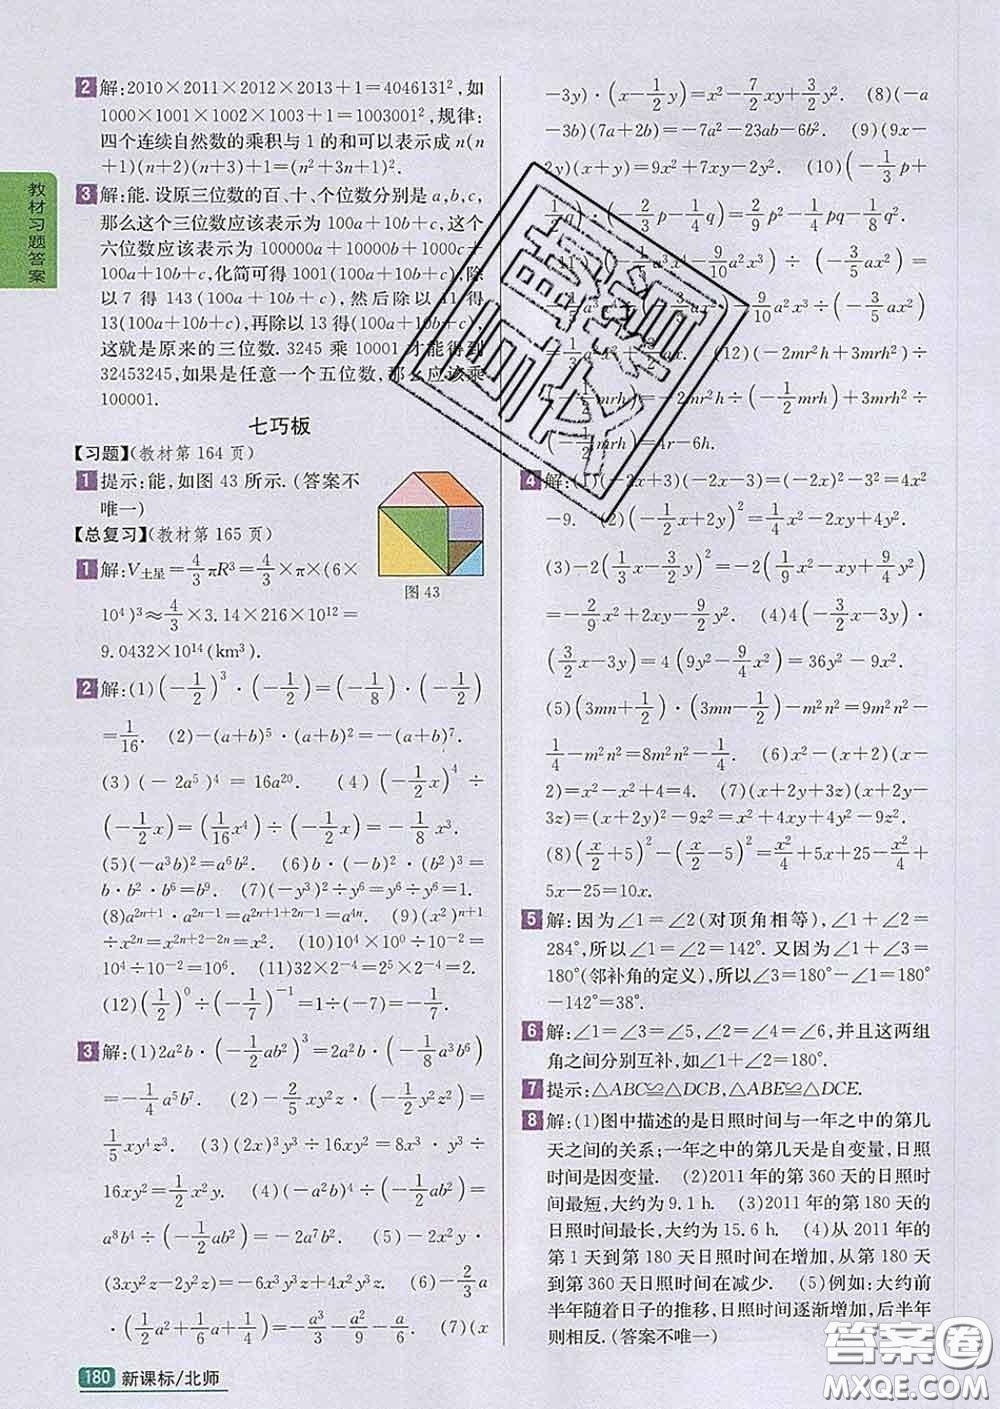 教材习题答案
2 解:2010×2011×2012×2013+1=4046131²,如
1000×1001×1002×1003+1=1003001²,规律:
四个连续自然数的乘积与1的和可以表示成n(n
+1)(n+2)(n+3)+1=(n²+3n+1)².
3 解:能.设原三位数的百、十、个位数分别是a,b,c,
那么这个三位数应该表示为100a+10b+c,这个
六位数应该表示为100000a+10000b+1000c+
100a+10b+c,化简可得1001(100a+10b+c),除
以7得143(100a+10b+c),然后除以11得
13(100a+10b+c),再除以13得(100a+10b+c),
这就是原来的三位数.3245乘10001才能得到
32453245,如果是任意一个五位数,那么应该乘
100001.
七巧板
【习题】(教材第164页)
1 提示:能,如图43所示.(答案不
唯一)
图43
【总复习】(教材第165页)
1 解:V土星=4/3πR³=4/3×π×(6×
10⁴)³≈4/3×3.14×216×10¹²=
9.0432×10¹⁴(km³).
2 解:(1)(-1/2)³·(-1/2)=(-1/8)·(-1/2)
=1/16. (2)-(a+b)⁵·(a+b)²=-(a+b)⁷.
(3)(-2a⁵)⁴=16a²⁰. (4)(-1/2x)⁴÷
(-1/2x)=(1/16x⁴)÷(-1/2x)=-1/8x³.
(5)(-a³b)²=a⁶b². (6)b·(-b)²·(b²)³=
b·b²·b⁶=b⁹. (7)(-y³)²÷y⁶=y⁶÷y⁶=1.
(8)a²ⁿ⁺¹·a²ⁿ⁻¹=a²ⁿ⁺¹⁺²ⁿ⁻¹=a⁴ⁿ. (9)(x²)ⁿ⁺¹
÷x²ⁿ=x²ⁿ⁺²⁻²ⁿ=x². (10)10⁴×10⁰÷10⁻²=
10⁴÷10⁻²=10⁶. (11)32×2⁻⁴=2⁵×2⁻⁴=2.
(12)(1/2)⁰÷(-1/7)⁻¹=1÷(-7)=-1/7.
3 解:(1)2a²b·(-1/2ab²)³=2a²b·(-1/8a³b⁶)
=-1/4a⁵b⁷. (2)-2/5xy²z·(-1/2y²z²)=
1/5xy⁴z³. (3)(2x)³y³÷16xy²=8x³·y³÷
16xy²=1/2x²y. (4)(-a²b)⁴÷(-1/2ab²)=
a⁸b⁴÷(-1/2ab²)=-2a⁷b². (5)-2x²y·
(3xy²z-2y²z)=-6x³y³z+4x²y³z. (6)-2/3a
·(1/2a²+1/6a+1/4)=-a³/3-a²/9-a/6. (7)(x
-3y)·(x-1/2y)=x²-7/2xy+3/2y². (8)(-a
-3b)(7a+2b)=-7a²-23ab-6b². (9)(9x-
2y)(x+y)=9x²+7xy-2y². (10)(-1/3p+
1/2q)÷(-2/3p-1/4q)=2/9p²-1/4pq-1/8q².
9/10a²x³)÷(-3/5ax²)=
9/10a²x³÷(-3/5ax²)=
(12)(-2mr²h+3mrh²)÷
-2mr²h÷(-1/2mrh)+3mrh²÷
(-1/2mrh)=4r-6h.
4 解:(1)(-2x+3)(-2x-3)=(-2x)²-3²=4x²
-9. (2)(-1/2x+2y)²=1/4x²-2xy+4y².
(3)-2(1/3x-3/2y)²=-2(1/9x²-xy+9/4y²)
=-2/9x²+2xy-9/2y². (4)4(-3/2x-3y)·
(3/2x-3y)=4(9y²-9/4x²)=36y²-9x².
(5)(3mn+1/2)·(3mn-1/2)-m²n²=9m²n²
-1/4-m²n²=8m²n²-1/4. (6)x²-(x+2)(x-
2)=x²-x²+4=4. (7)(x+2y+3z)(x+2y-
3z)=(x+2y)²-9z²=x²+4xy+4y²-9z².
(8)(x/2+5)²-(x/2-5)²=x²/4+5x+25-x²/4+
5x-25=10x.
5 解:因为∠1=∠2(对顶角相等),∠1+∠2=
284°,所以∠1=∠2=142°.又因为∠1+∠3=
180°(邻补角的定义),所以∠3=180°-∠1=180°
-142°=38°.
6 解:∠1=∠3=∠5,∠2=∠4=∠6,并且这两组
角之间分别互补,如∠1+∠2=180°.
7 提示:△ABC≌△DCB,△ABE≌△DCE.
8 解:(1)图中描述的是日照时间与一年之中的第几
天之间的关系;一年之中的第几天是自变量,日照
时间是因变量. (2)2011年的第360天的日照时
间最短,大约为9.1 h. (3)2011年的第180天的
日照时间最长,大约为15.6 h. (4)从2011年的
第1天到第180天日照时间在增加,从第180天
到第360天日照时间在减少. (5)例如:大约前
半年随着日子的推移,日照时间逐渐增加,后半年
则相反.(答案不唯一)
180 新课标/北师
答案圈
MXQE.COM